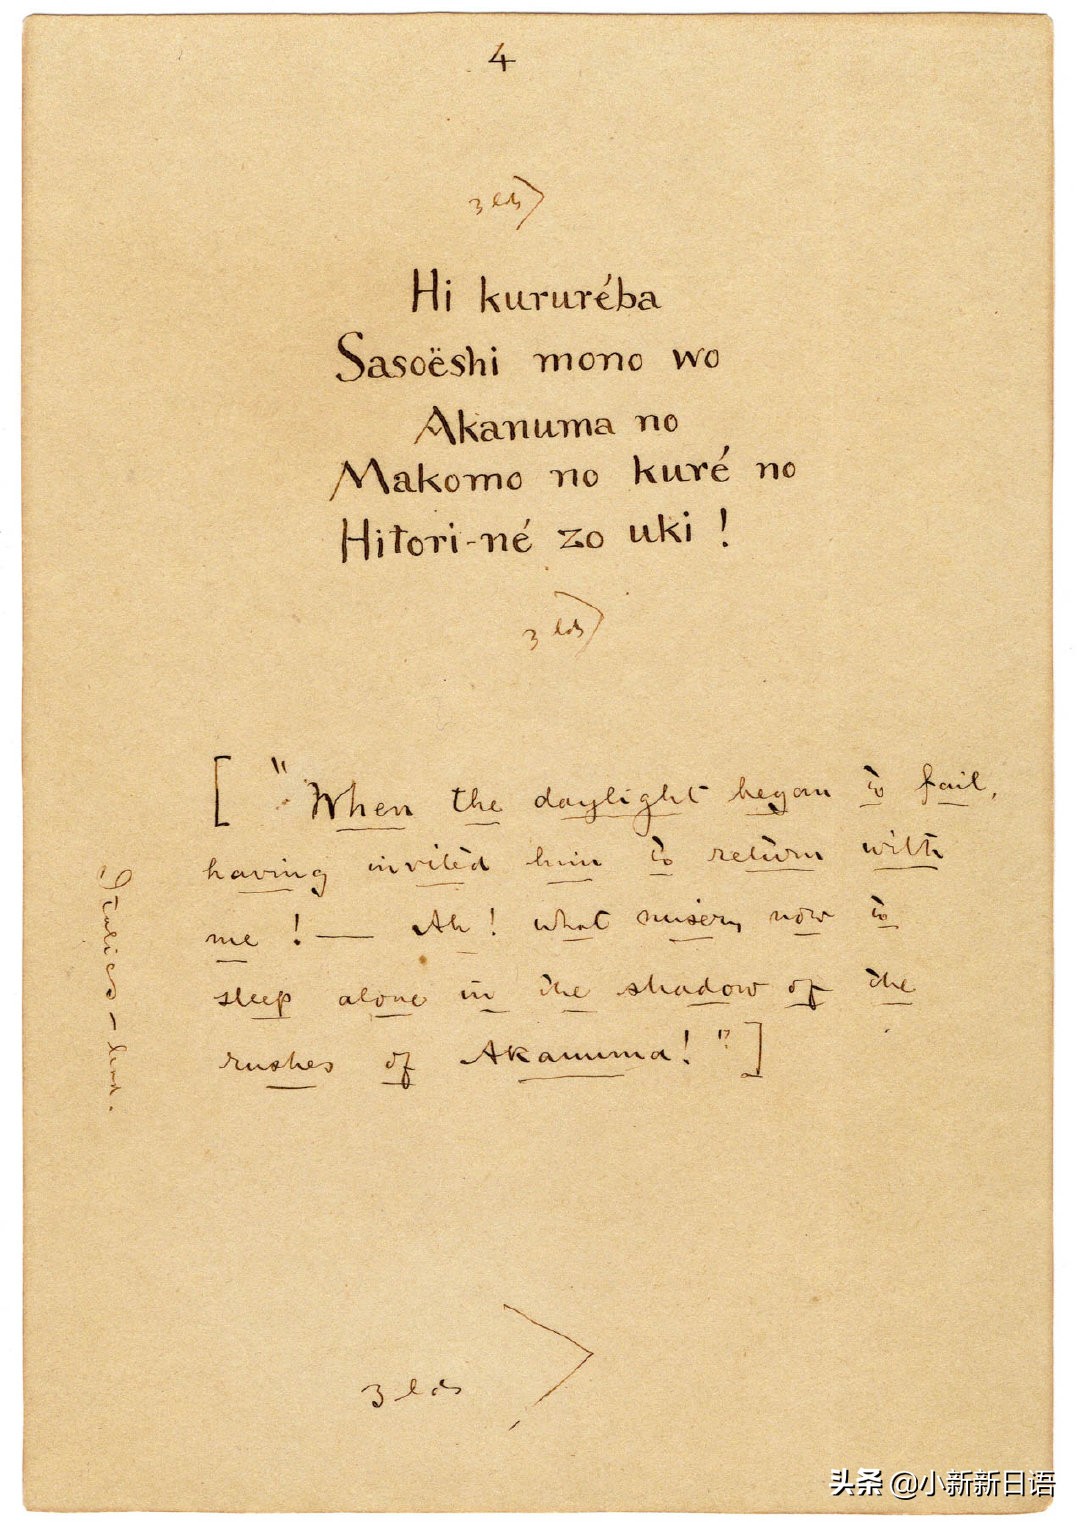 4
3 lds
Hi kururéba
Sasoëshi mono wo
Akanuma no
Makomo no kuré no
Hitori-né zo uki!
3 lds
["When the daylight began to fail,
having invited him to return with
me! — Ah! what misery now to
sleep alone in the shadow of the
rushes of Akanuma!"]
Italics
3 lds
头条 @小新新日语